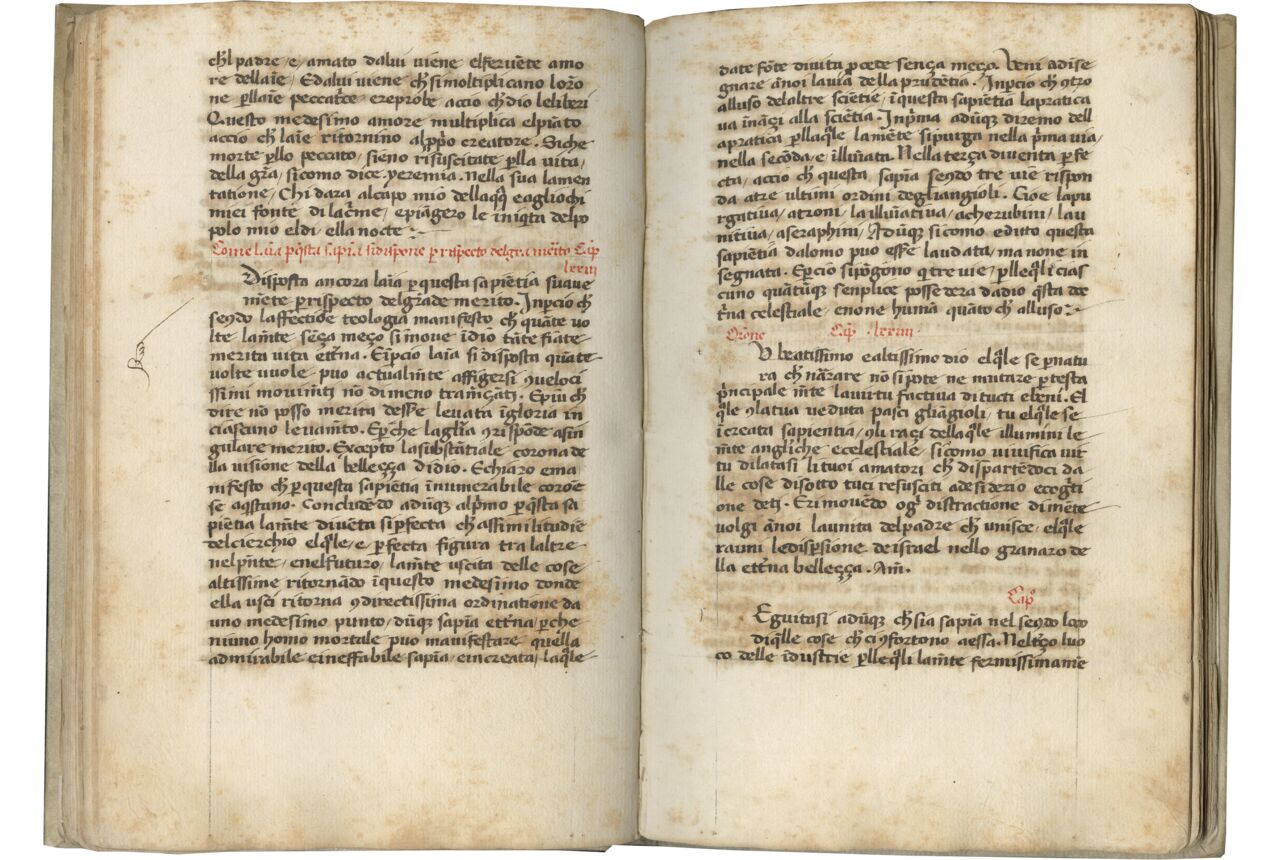 ch̄l padre / e / amato dalui viene elferuēte amo
re dellaīe / Edalui viene ch̄ si moltiplicano lor̄o
ne p̱llaīe peccat̄ce ereprobe accio ch̄ dio leliberi
Questo medesimo amore multiplica elpiāto
accio ch̄ laīe ritornino alpp̄o creatore. Siche
morte p̱llo peccato / sieno risuscitate p̱lla vita /
della gr̄a / sicomo dice yeremia. nella sua lamen
tatione / Chi dara alcapo mio dellaq̄q̄ eagliochi
miei fonte di lac̄me / epiāgero le iniq̄ta delpo
polo mio eldi / ella nocte
Come lāīa p̱ q̄sta sap̄īa si dispone p̱ rispecto del gr̄a merito Cap̄
lxxiij
Disposta ancora laīa p̱ questa sapiētia suaue
mēte p̱ rispecto delgrade merito. Inp̱cio ch̄
sendo laffectiōe teologia manifesto ch̄ quāte uo
lte lam̄te sēça meço si moue īdio tāte fiate
merita vita et̄rna. Ep̱cio laīa si disposta quāte
volte vuole / puo actualm̄te affigersi 9 veloci
ssimi mouim̄ti nō di meno tram̄çati. Epiu ch̄
dire nō posso merita desse̱ leuata īgloria in
ciascuno leuam̄to. Ep̱che laglīa 9rispōde asin
gulare merito. Excepto lasubstātiale corona de
lla visione della belleçça didio. Echiaro ema
nifesto ch̄ p̱ questa sapiētia īnumerabile coroē
se aq̄stano. Concludēdo adūq̄ alp̄mo p̱ q̄sta sa
piētia lam̄te diuēta si p̱fecta ch̄ assimilitudīe
delcierchio elq̄le / e / p̱fecta figura tra laltre
nelp̄nte / enelfuturo / lam̄te uscita delle cose
altissime ritornādo īquesto medesimo donde
ella usci ritorna 9 directissima ordinatione da
uno medesimo punto / dūq̄ sapīa et̄rna / p̱che
niuno homo mortale puo manifestare quella
admirabile eineffabile sapīa / eincreata / laq̄le
date fōte diuita p̱cede sença meço. Veni adise
gnare ānoi lauia della prudētia. Inp̱cio ch̄ 9tro
alluso delaltre sciētie / īquesta sapiētia lapratica
va ināçi alla sciētia. Inp̄ma adūq̄ diremo dell
apratica p̱llaq̄le lamēte sipurga nella p̄ma via /
nella secōda / e / illuīata. Nella terça diuenta p̱fe
cta / accio ch̄ questa sapīa sendo tre vie rispon
da atre ultimi ordini degliangioli. Cioe lapu
rgatiua / atroni / la illuīatiua / acherubini / lau
nitiua / aseraphini / Adūq̄ sicomo edito questa
sapiētia dalomo puo esse̱ laudata / ma none in
segnata. Ep̱cio sipōgono q̄ tre vie / p̱lleq̄li cias
cuno quātūq̄ senplice posse dera dadio q̄sta doc
t̄na celestiale / enone humāa quāto ch̄ alluso
Or̄one Cap̄ .lxxiiij.
O beatissimo ealtissimo dio elq̄le se p̱natu
ra ch̄ nārare nō si pote ne mutare p̱ testa
p̄ncipale m̄te lauirtu factiua di tucti ebeni. El
q̄le 9latua veduta pasci gliāngioli / tu elq̄le se
īcreata sapientia / 9li raçi dellaq̄le illumini le
m̄te angliche ecelestiale / sicomo viuifica vir
tu dilatasi lituoi amatori ch̄ dispartēdoci da
lle cose disotto tuci resusciti adesiderio ecoḡti
one deti. Erimouēdo oḡ distractione di mēte
volgi ānoi launita delpadre ch̄ unisce / elq̄le
rauni ledisp̱sione de israel nello granaro de
lla et̄rna belleçça. Am̄.
Cap̄o
Eguitasi adūq̄ ch̄ sia sapīa nel sendo loco
diq̄lle cose ch̄ ci 9fortono aessa. Nelt̄ço luo
co delle īdustrie p̱lleq̄li lam̄te fermissimame